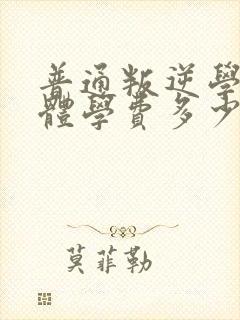 普通叛逆學
體學費多少
莫菲勒